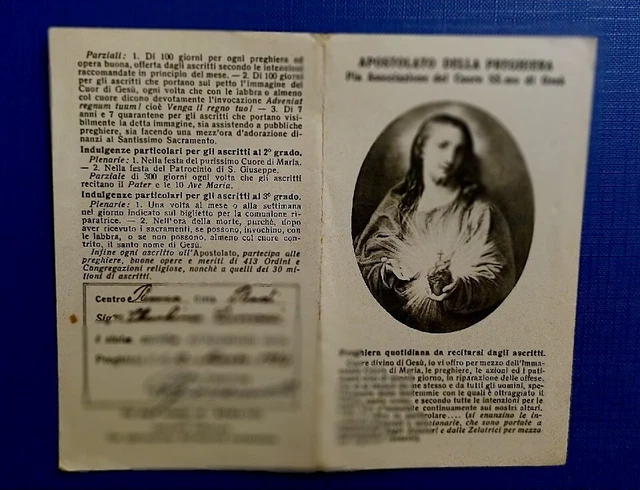 Parziali: 1. Di 100 giorni per ogni preghiera ed
opera buona, offerta dagli ascritti secondo le intenzioni
raccomandate in principio del mese. — 2. Di 100 giorni
per gli ascritti che portano sul petto l'immagine del
Cuor di Gesù, ogni volta che con le labbra o almeno
col cuore dicono devotamente l'invocazione Adveniat
regnum tuum! cioè Venga il regno tuo! — 3. Di 7
anni e 7 quarantene per gli ascritti che portano visi-
bilmente la detta immagine, sia assistendo a pubbliche
preghiere, sia facendo una mezz'ora d'adorazione di-
nanzi al Santissimo Sacramento.
Indulgenze particolari per gli ascritti al 2º grado.
Plenarie: 1. Nella festa del purissimo Cuore di Maria.
— 2. Nella festa del Patrocinio di S. Giuseppe.
Parziale di 300 giorni ogni volta che gli ascritti
recitano il Pater e le 10 Ave Maria.
Indulgenze particolari per gli ascritti al 3º grado.
Plenarie: 1. Una volta al mese o alla settimana
nel giorno indicato sul biglietto per la comunione ri-
paratrice. — 2. Nell'ora della morte, purchè, dopo
aver ricevuto i sacramenti, se possono, invochino, con
le labbra, o se non possono, almeno col cuore con-
trito, il santo nome di Gesù.
Infine ogni ascritto all'Apostolato, partecipa alle
preghiere, buone opere e meriti di 413 Ordini e
Congregazioni religiose, nonchè a quelli dei 30 mi-
lioni di ascritti.
Centro
Sig.
APOSTOLATO DELLA PREGHIERA
Pia Associazione del Cuore SS.mo di Gesù
Preghiera quotidiana da recitarsi dagli ascritti.
Cuore divino di Gesù, io vi offro per mezzo dell'Imma-
Cuore di Maria, le preghiere, le azioni ed i pati-
giorno, in riparazione delle offese,
me stesso e da tutti gli uomini, spe-
con le quali è oltraggiato il
e secondo tutte le intenzioni per le
continuamente sui nostri altari.
(si enunzino le in-
che sono portate a
e dalle Zelatrici per mezzo